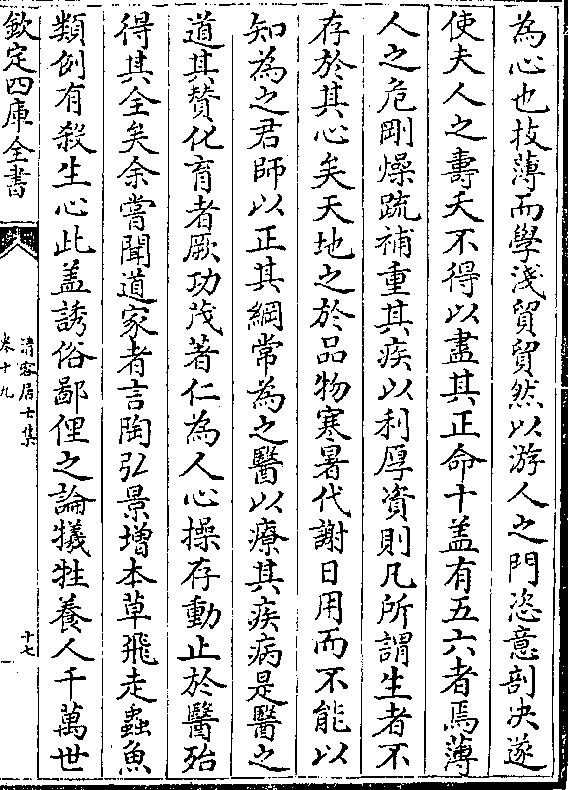 為心也技薄而學淺貿貿然以游人之門恣意剖决遂
使夫人之壽夭不得以盡其正命十盖有五六者焉薄
人之危剛燥䟽補重其疾以利厚資則凡所謂生者不
存於其心矣天地之於品物寒暑代謝日用而不能以
知為之君師以正其綱常為之醫以療其疾病是醫之
道其賛化育者厥功茂著仁為人心操存動止於醫殆
得其全矣余嘗聞道家者言陶弘景增本草飛走蟲魚
類刽有殺生心此盖誘俗鄙俚之論犧牲養人千萬世
欽定四庫全書
清容居士集
卷十九
十七